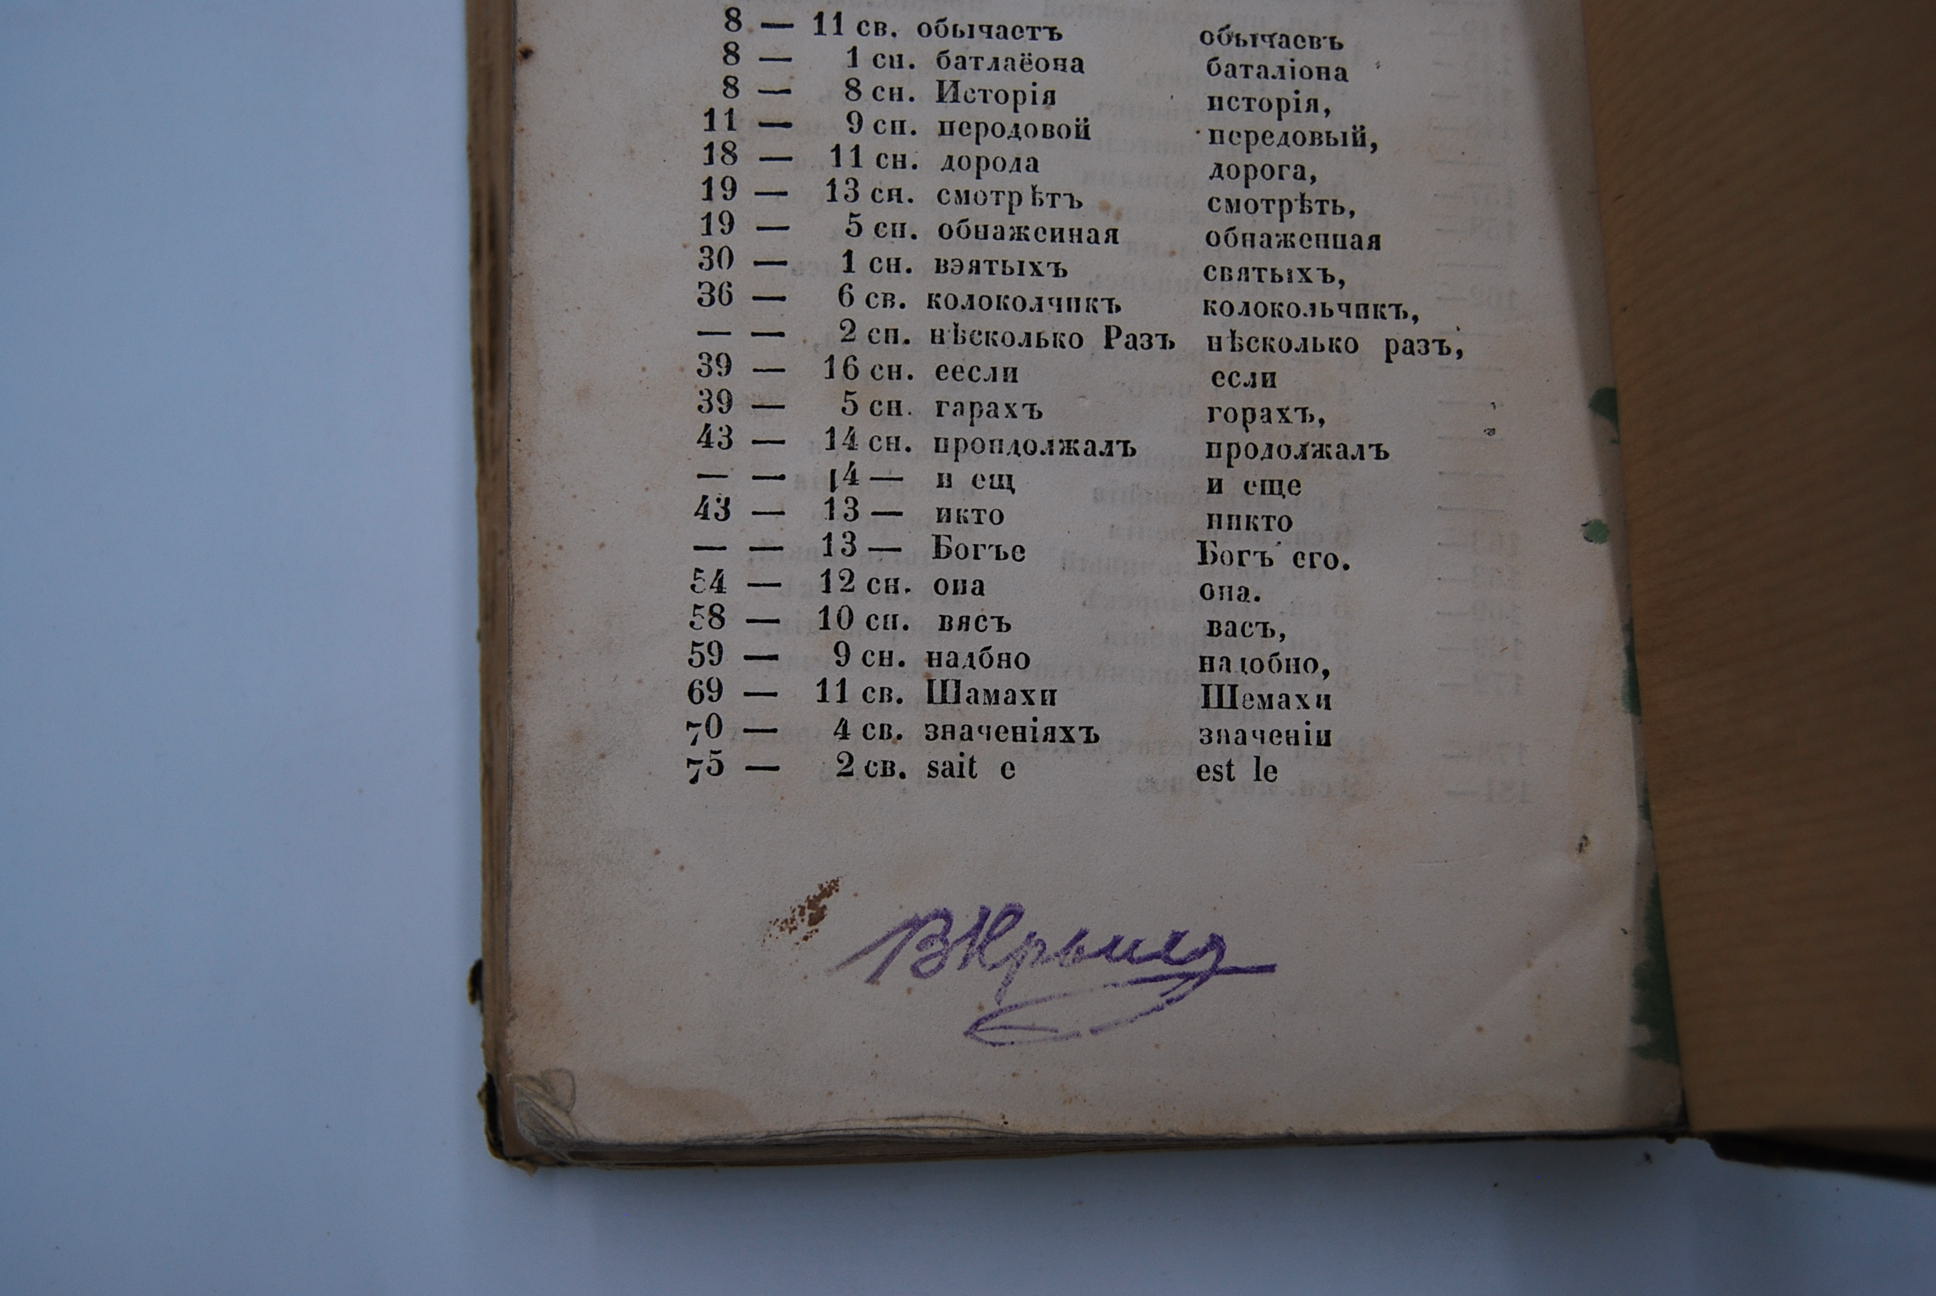 8 — 11 св. обычаетъ обычаевъ
8 — 1 сн. батлаёона баталіона
8 — 8 сн. Исторія исторія,
11 — 9 сн. перодовой передовый,
18 — 11 сн. дорода дорога,
19 — 13 сн. смотрѣтъ смотрѣть,
19 — 5 сн. обнажеиная обнаженная
30 — 1 сн. вэятыхъ святыхъ,
36 — 6 св. колоколчикъ колокольчикъ,
— — 2 сн. нѣсколько Разъ нѣсколько разъ,
39 — 16 сн. еесли если
39 — 5 сн. гарахъ горахъ,
43 — 14 сн. прондолжалъ продолжалъ
— — 14 — и ещ и еще
43 — 13 — икто никто
— — 13 — Богъе Богъ его.
54 — 12 сн. она она.
58 — 10 сн. вясъ васъ,
59 — 9 сн. надбно надобно,
69 — 11 св. Шамахи Шемахи
70 — 4 св. значеніяхъ значеніи
75 — 2 св. sait e est le